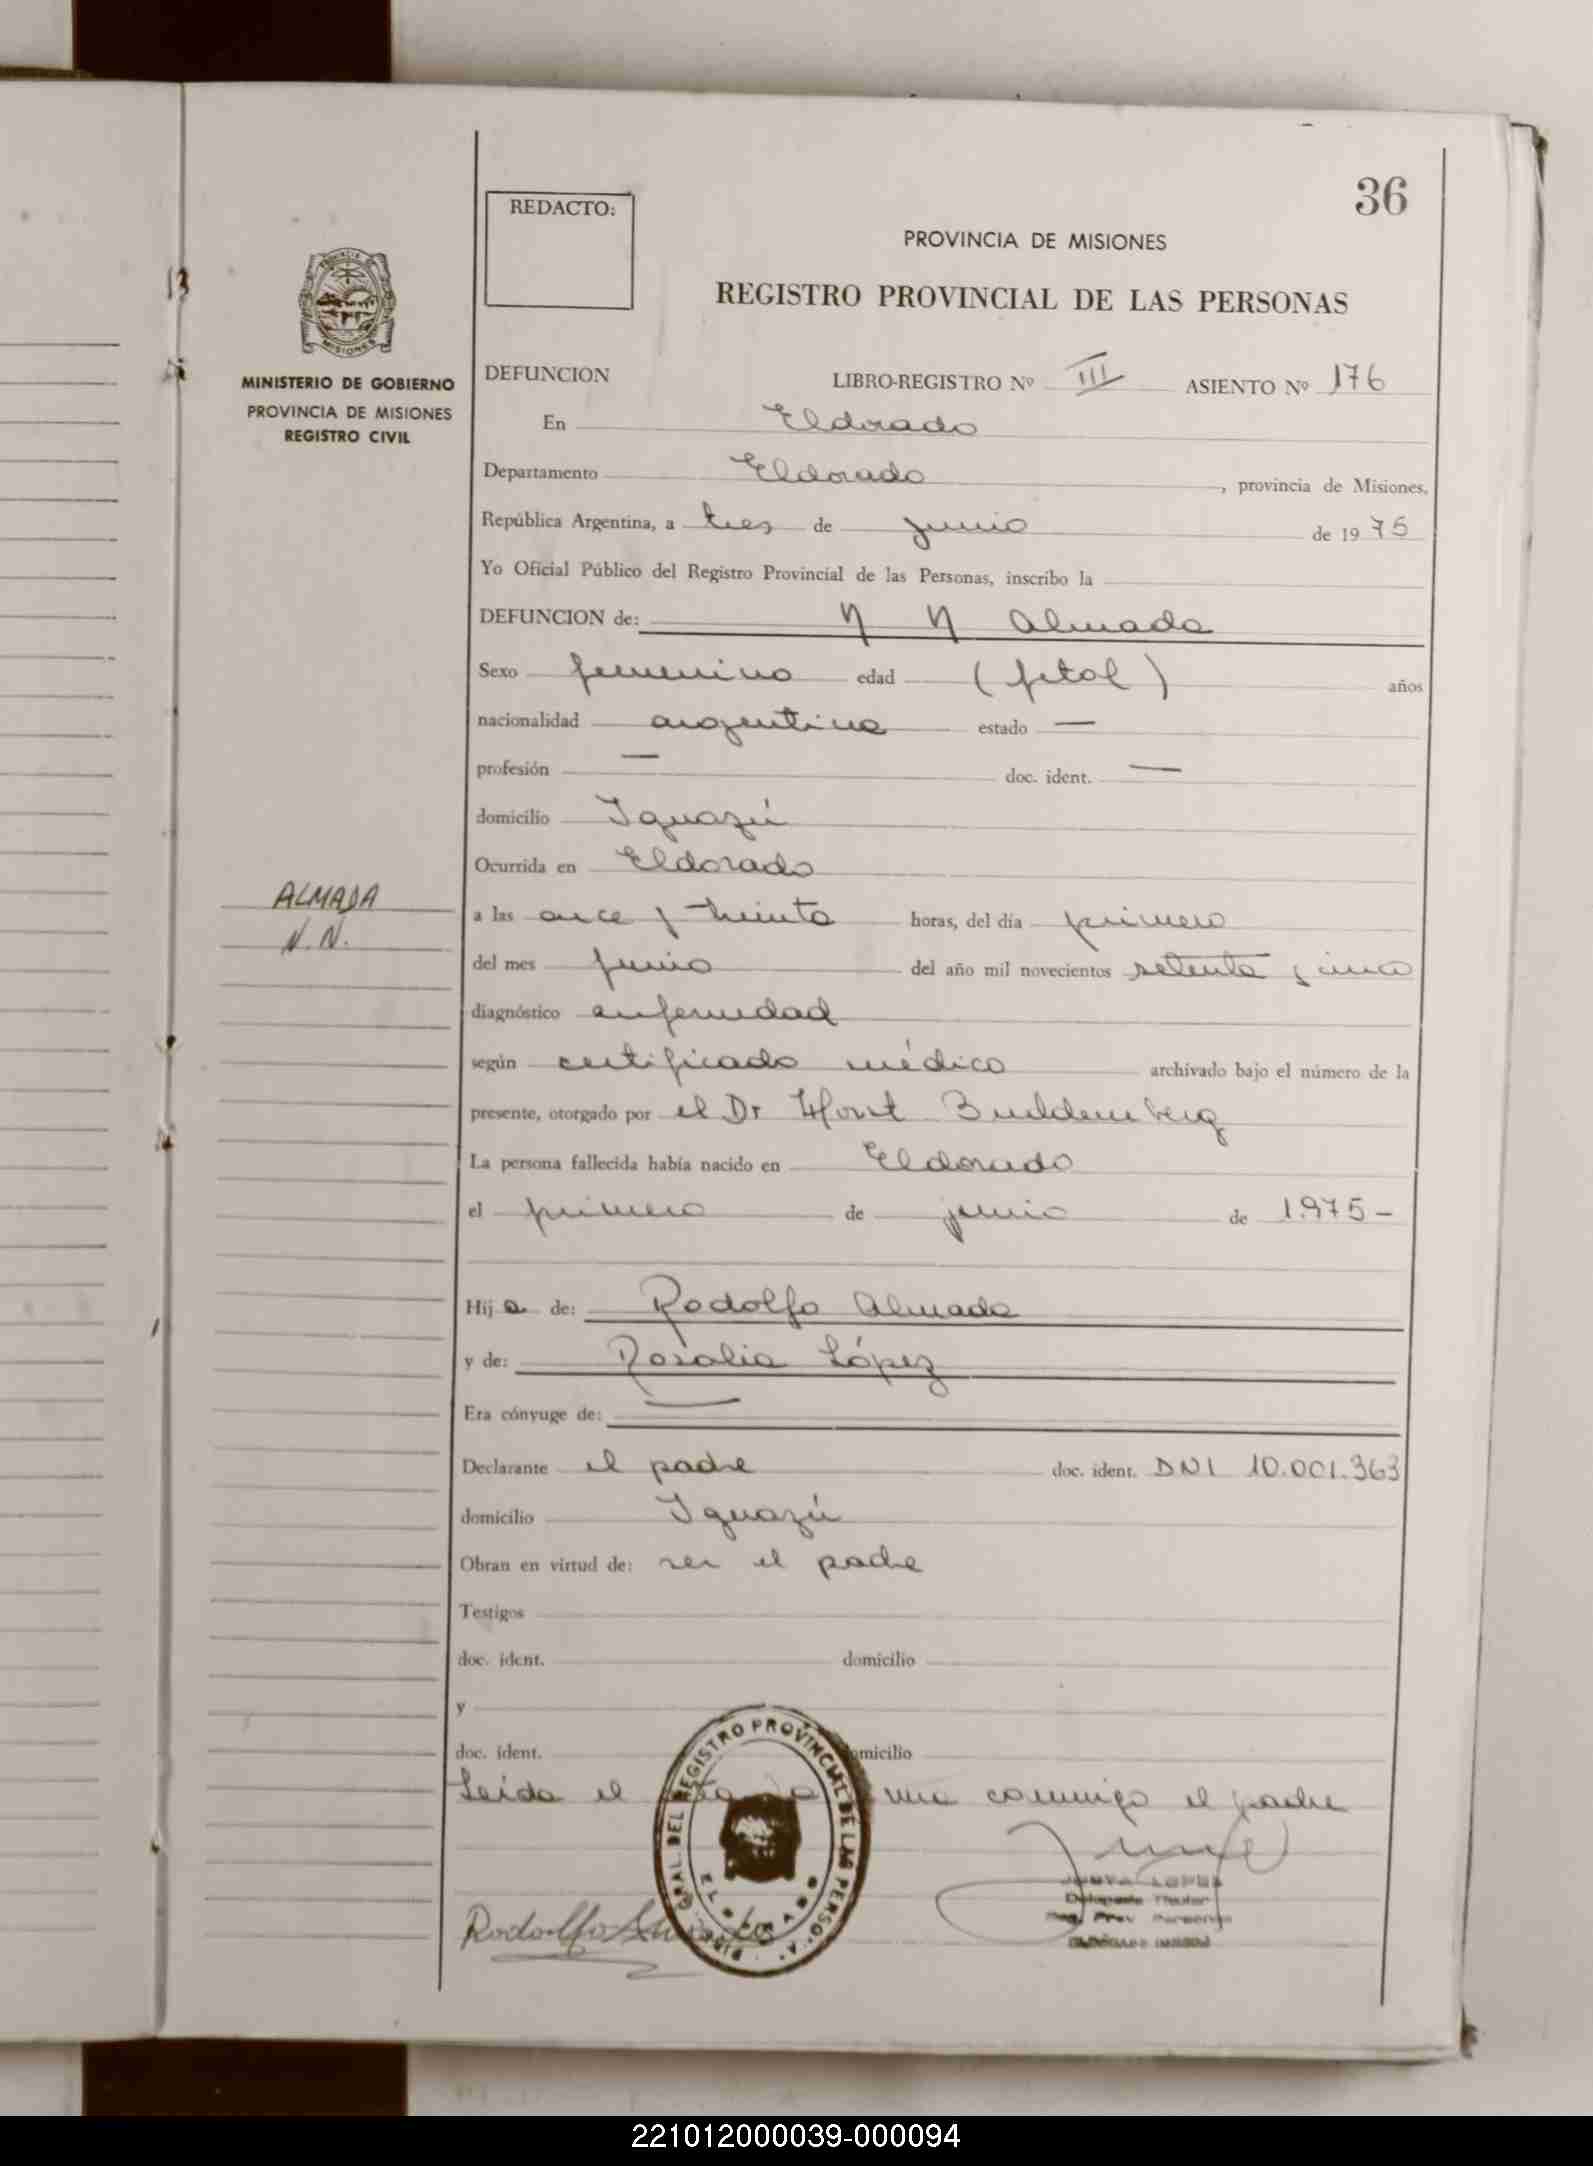 36
REDACTO:
PROVINCIA DE MISIONES
REGISTRO PROVINCIAL DE LAS PERSONAS
13
PROVINCIA DE
MISIONES
MINISTERIO DE GOBIERNO
PROVINCIA DE MISIONES
REGISTRO CIVIL
DEFUNCION LIBRO-REGISTRO Nº III ASIENTO Nº 176
En Eldorado
Departamento Eldorado, provincia de Misiones,
República Argentina, a tres de junio de 1975
Yo Oficial Público del Registro Provincial de las Personas, inscribo la
DEFUNCION de: N N Almada
Sexo femenino edad (fetal) años
nacionalidad argentina estado —
profesión — doc. ident. —
domicilio Iguazú
Ocurrida en Eldorado
ALMADA
N.N.
a las once y treinta horas, del día primero
del mes junio del año mil novecientos setenta y cinco
diagnóstico enfermedad
según certificado médico archivado bajo el número de la
presente, otorgado por el Dr Horst Buddemberg
La persona fallecida había nacido en Eldorado
el primero de junio de 1.975-
Hija de: Rodolfo Almada
y de: Rosalia López
Era cónyuge de: —
Declarante el padre doc. ident. DNI 10.001.363
domicilio Iguazú
Obran en virtud de: ser el padre
Testigos
doc. ident. domicilio
y
doc. ident. domicilio
Leida el conmigo el padre
GRAL. DEL REGISTRO PROVINCIAL DE LAS PERSO
ELDORADO
Rodolfo Almada
LOPEZ
Titular
221012000039-000094